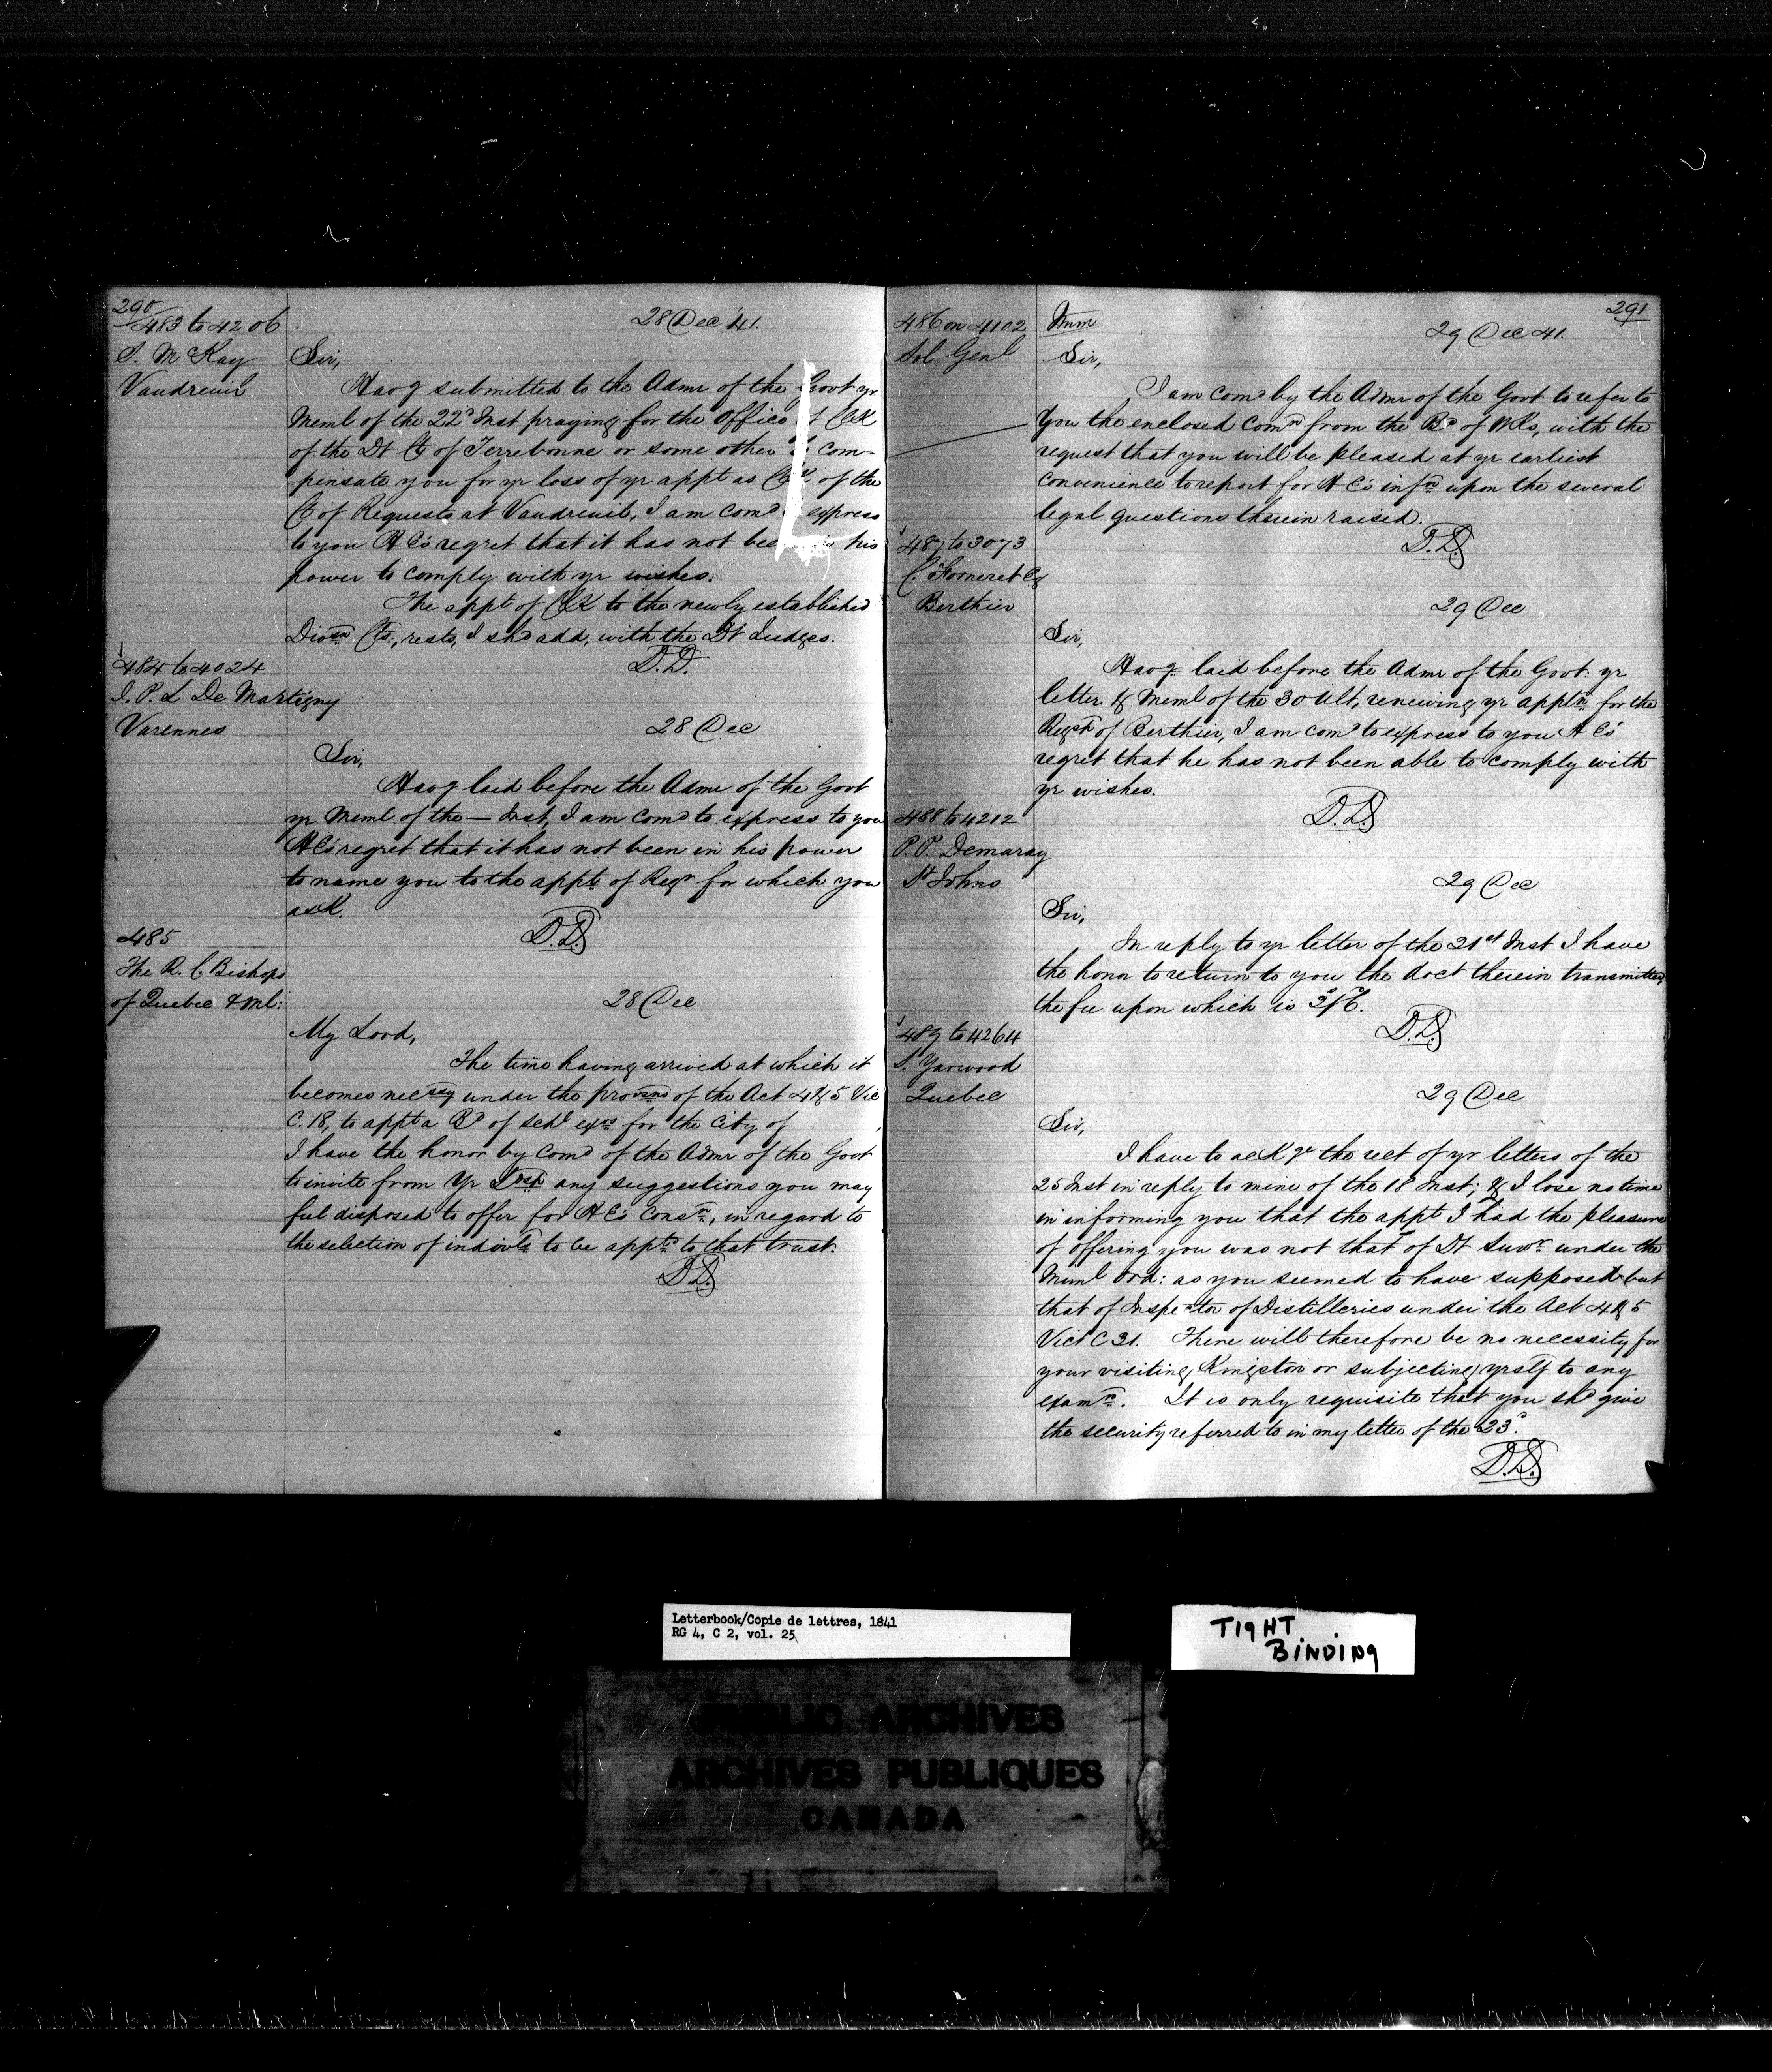 290
483 to 4206
S. McKay
Vaudreuil
28 Dec '41.
Sir,
Havg submitted to the Admr of the Govt yr
Meml of the 22d Inst praying for the Office of Clk
of the Dt Ct of Terrebonne or some other to com-
pensate you for yr loss of yr appt as Clk of the
Ct of Requests at Vaudreuil, I am comd express
to you H E's regret that it has not been in his
power to comply with yr wishes.
The appt of Clk to the newly established
Divisn Cts, rests, I shd add, with the Dt Judges.
D.D.
484 to 4024
J. P. L. De Martigny
Varennes
28 Dec
Sir,
Havg laid before the Admr of the Govt
yr Meml of the — Inst, I am comd to express to you
H E's regret that it has not been in his power
to name you to the appt of Regr for which you
ask.
D.D.
485
The R. C. Bishops
of Quebec & Ml:
28 Dec
My Lord,
The time having arrived at which it
becomes necssy under the provsns of the Act 4 & 5 Vic
C. 18, to appt a Bd of Schl exrs for the City of
I have the honor by Comd of the Admr of the Govt
to invite from Yr Lrdsp any suggestions you may
feel disposed to offer for H E's Consn, in regard to
the selection of indivls to be apptd to that trust.
D.D.
291
486 on 4102
Sol Genl
Imm
29 Dec 41.
Sir,
I am comd by the Admr of the Govt to refer to
you the enclosed Comn from the Bd of Wks, with the
request that you will be pleased at yr earliest
convenience to report for H E's infn upon the several
legal questions therein raised.
D.D.
487 to 3073
C. Forneret Esq
Berthier
29 Dec
Sir,
Havg laid before the Admr of the Govt: yr
letter & Meml of the 30 Ult, renewing yr appln for the
Regr of Berthier, I am comd to express to you H E's
regret that he has not been able to comply with
yr wishes.
D.D.
488 to 4212
P. P. Demaray
St Johns
29 Dec
Sir,
In reply to yr letter of the 21st Inst I have
the honor to return to you the doct therein transmitted,
the fee upon which is
D.D.
489 to 4264
S. Yarwood
Quebec
29 Dec
Sir,
I have to ackge the rect of yr letters of the
25 Inst in reply to mine of the 18 Inst; & I lose no time
in informing you that the appt I had the pleasure
of offering you was not that of Dt Survr under the
Munl Ord: as you seemed to have supposed but
that of Inspector of Distilleries under the Act 4 & 5
Vict C 31. There will therefore be no necessity for
your visiting Kingston or subjecting yrself to any
examn. It is only requisite that you shd give
the security referred to in my letter of the 23d.
D.D.
Letterbook/Copie de lettres, 1841
RG 4, C 2, vol. 25
TIGHT
BINDING
PUBLIC ARCHIVES
ARCHIVES PUBLIQUES
CANADA